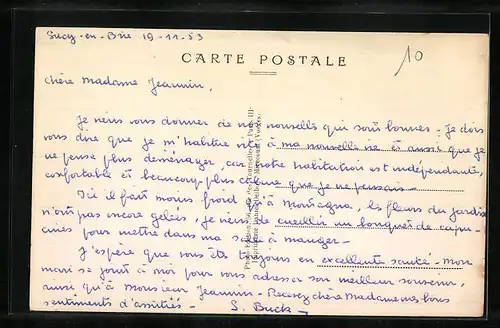 Sucy-en-Brie 19-11-53
CARTE POSTALE
10
Chère Madame Jeannin,
Je viens vous donner de nos nouvelles qui sont bonnes. Je dois
vous dire que je m'habitue vite à ma nouvelle vie et aussi que je
ne pense plus déménager car notre habitation est indépendante,
confortable et beaucoup plus calme que je ne pensais -
Ici il fait moins froid qu'à les fleurs du jardin
n'ont pas encore gelées, je viens de cueillir un bouquet de capu-
cines pour mettre dans ma salle à manger -
J'espère que vous êtes toujours en excellente santé - Mon
mari se joint à moi pour vous adresser son meilleur souvenir,
ainsi qu'à Monsieur Jeannin - Recevez chère Madame mes bons
sentiments d'amitiés - S. Buck